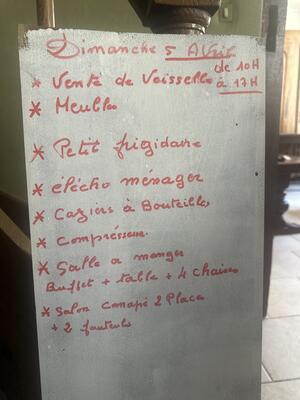 Dimanche 5 Avril
de 10H
* Vente de Vaisselle à 17H
* Meubles
* Petit frigidaire
* élécho ménager
* Caziers à Bouteilles
* Compresseur
* Salle a manger
Buffet + table + 4 chaises
* Salon canapé 2 Place
+ 2 fauteuils